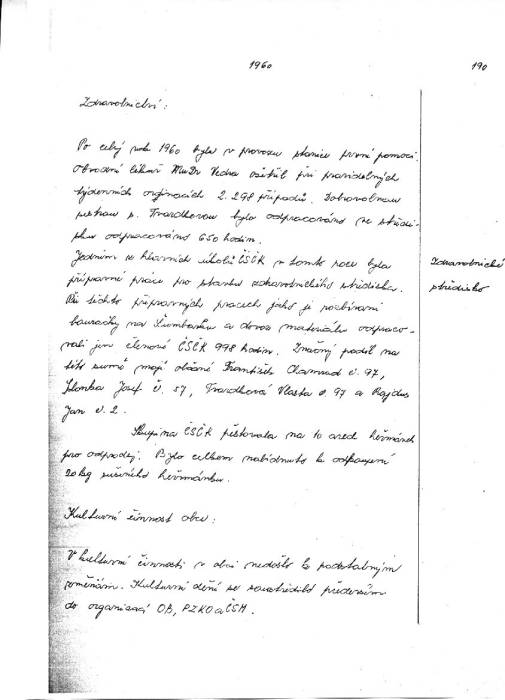 1960
190
Zdravotnictví:
Po celý rok 1960 byla v provozu stanice první pomoci.
Obvodní lékař MuDr Vedra ošetřil při pravidelných
týdenních orginacích 2.298 případů. Dobrovolnou
sestrou s. Tvardkovou bylo odpracováno ve středi-
sku odpracováno 650 hodin.
Jedním ze hlavních úkolů ČSČK v tomto roce byla
přípravné práce pro stavbu zdravotnického střediska.
Při těchto přípravných pracech jako je rozbírání
bouračky na Šumbarku a dovoz materiálu odpraco-
vali jen členové ČSČK 998 hodin. Značný podíl na
této sumě mají občané František Chamrad č. 97,
Josef č. 57, Tvardková Vlasta č. 97 a Rajdus
Jan č. 2.
Zdravotnické
středisko
Skupina ČSČK pěstovala na 10 arech heřmánek
pro odprodej. Bylo celkem nabídnuto k odkoupení
20 kg sušeného heřmánku.
Kulturní činnost obce:
V kulturní činnosti v obci nedošlo k podstatným
změnám. Kulturní dění se soustředilo především
do organisací OB, PZKO a ČSM.